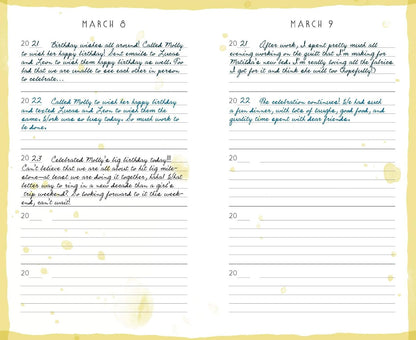 MARCH 8
20 21 Birthday wishes all around! Called Molly
to wish her happy birthday! Sent emails to Lucas
and Leon to wish them happy birthday as well. Too
bad that we are unable to see each other in person
to celebrate...
20 22 Called Molly to wish her happy birthday
and texted Lucas and Leon to wish them the
same. Work was so busy today. So much work to
be done.
20 23 Celebrated Molly's big birthday today!!!
Can't believe that we are all about to hit big mile-
stone—at least we are doing it together, haha! What
better way to ring in a new decade than a girl's
trip weekend? So looking forward to it this week-
end, can't wait!
20
20
MARCH 9
20 21 After work, I spent pretty much all
evening working on the quilt that I'm making for
Matilda's new bed. I'm really loving all the fabrics
I got for it and think she will too (hopefully!)
20 22 The celebration continues! We had such
a fun dinner, with lots of laughs, good food, and
quality time spent with dear friends.
20
20
20